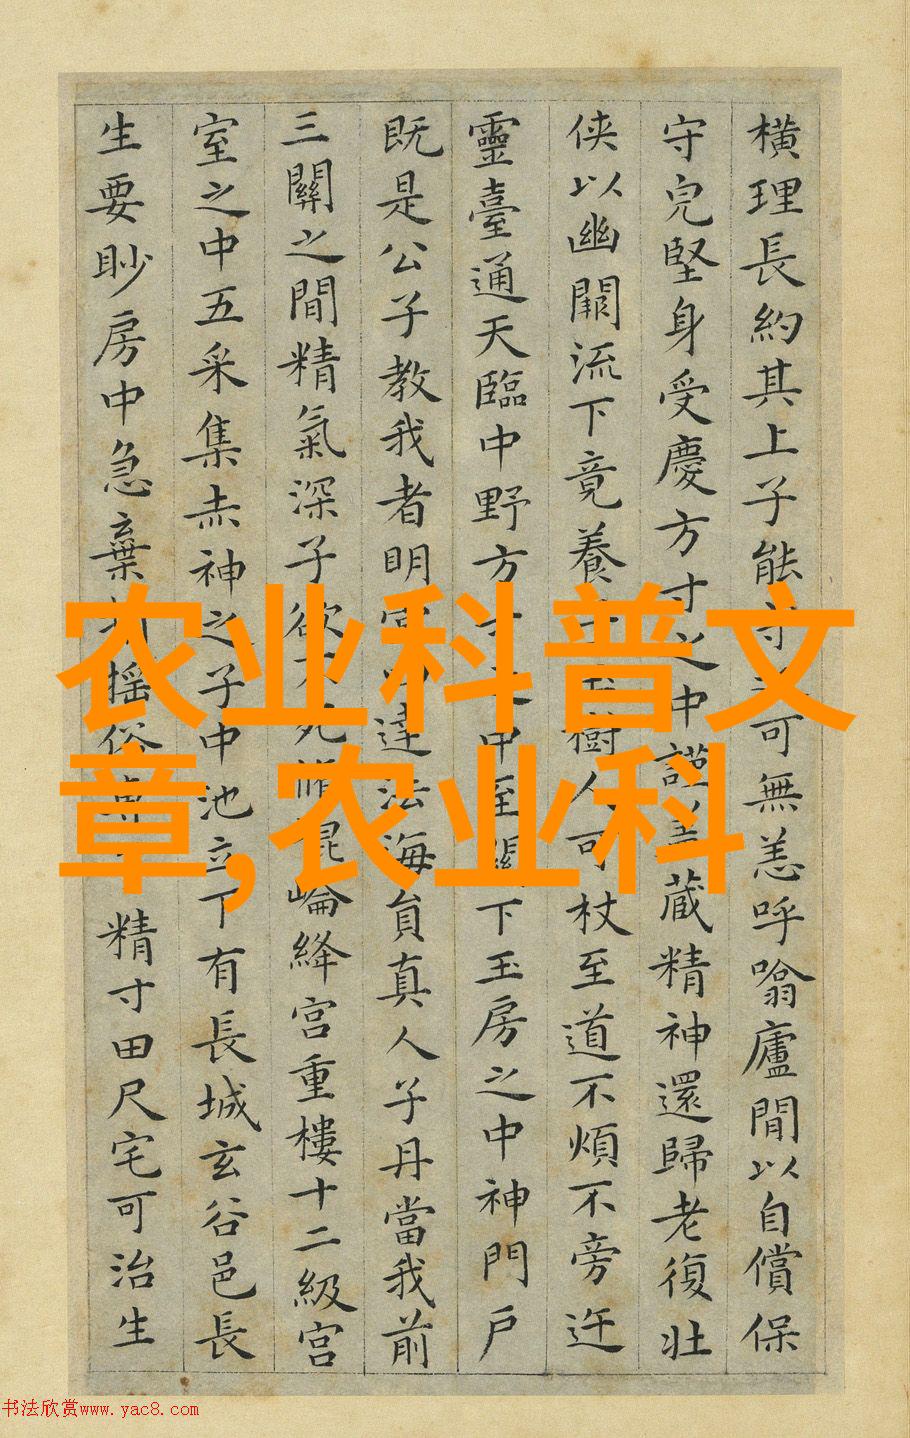 橫理長約其上子能守可無恙呼噏廬間以自償保
守完堅身受慶方寸之中謹蓋藏精神還歸老復壯
俠以幽闕流下竟養樹人可杖至道不煩不旁迕
靈臺通天臨中野方寸之中至關下玉房之中神門戶
既是公子教我者明堂達法海員真人子丹當我前
三關之間精氣深子欲不死脩崑崙絳宮重樓十二級宮
室之中五采集赤神之子中池立下有長城玄谷邑長
生要眇房中急棄搖俗精寸田尺宅可治生
农业科普文
章,农业科
书法欣赏www.yac8.com